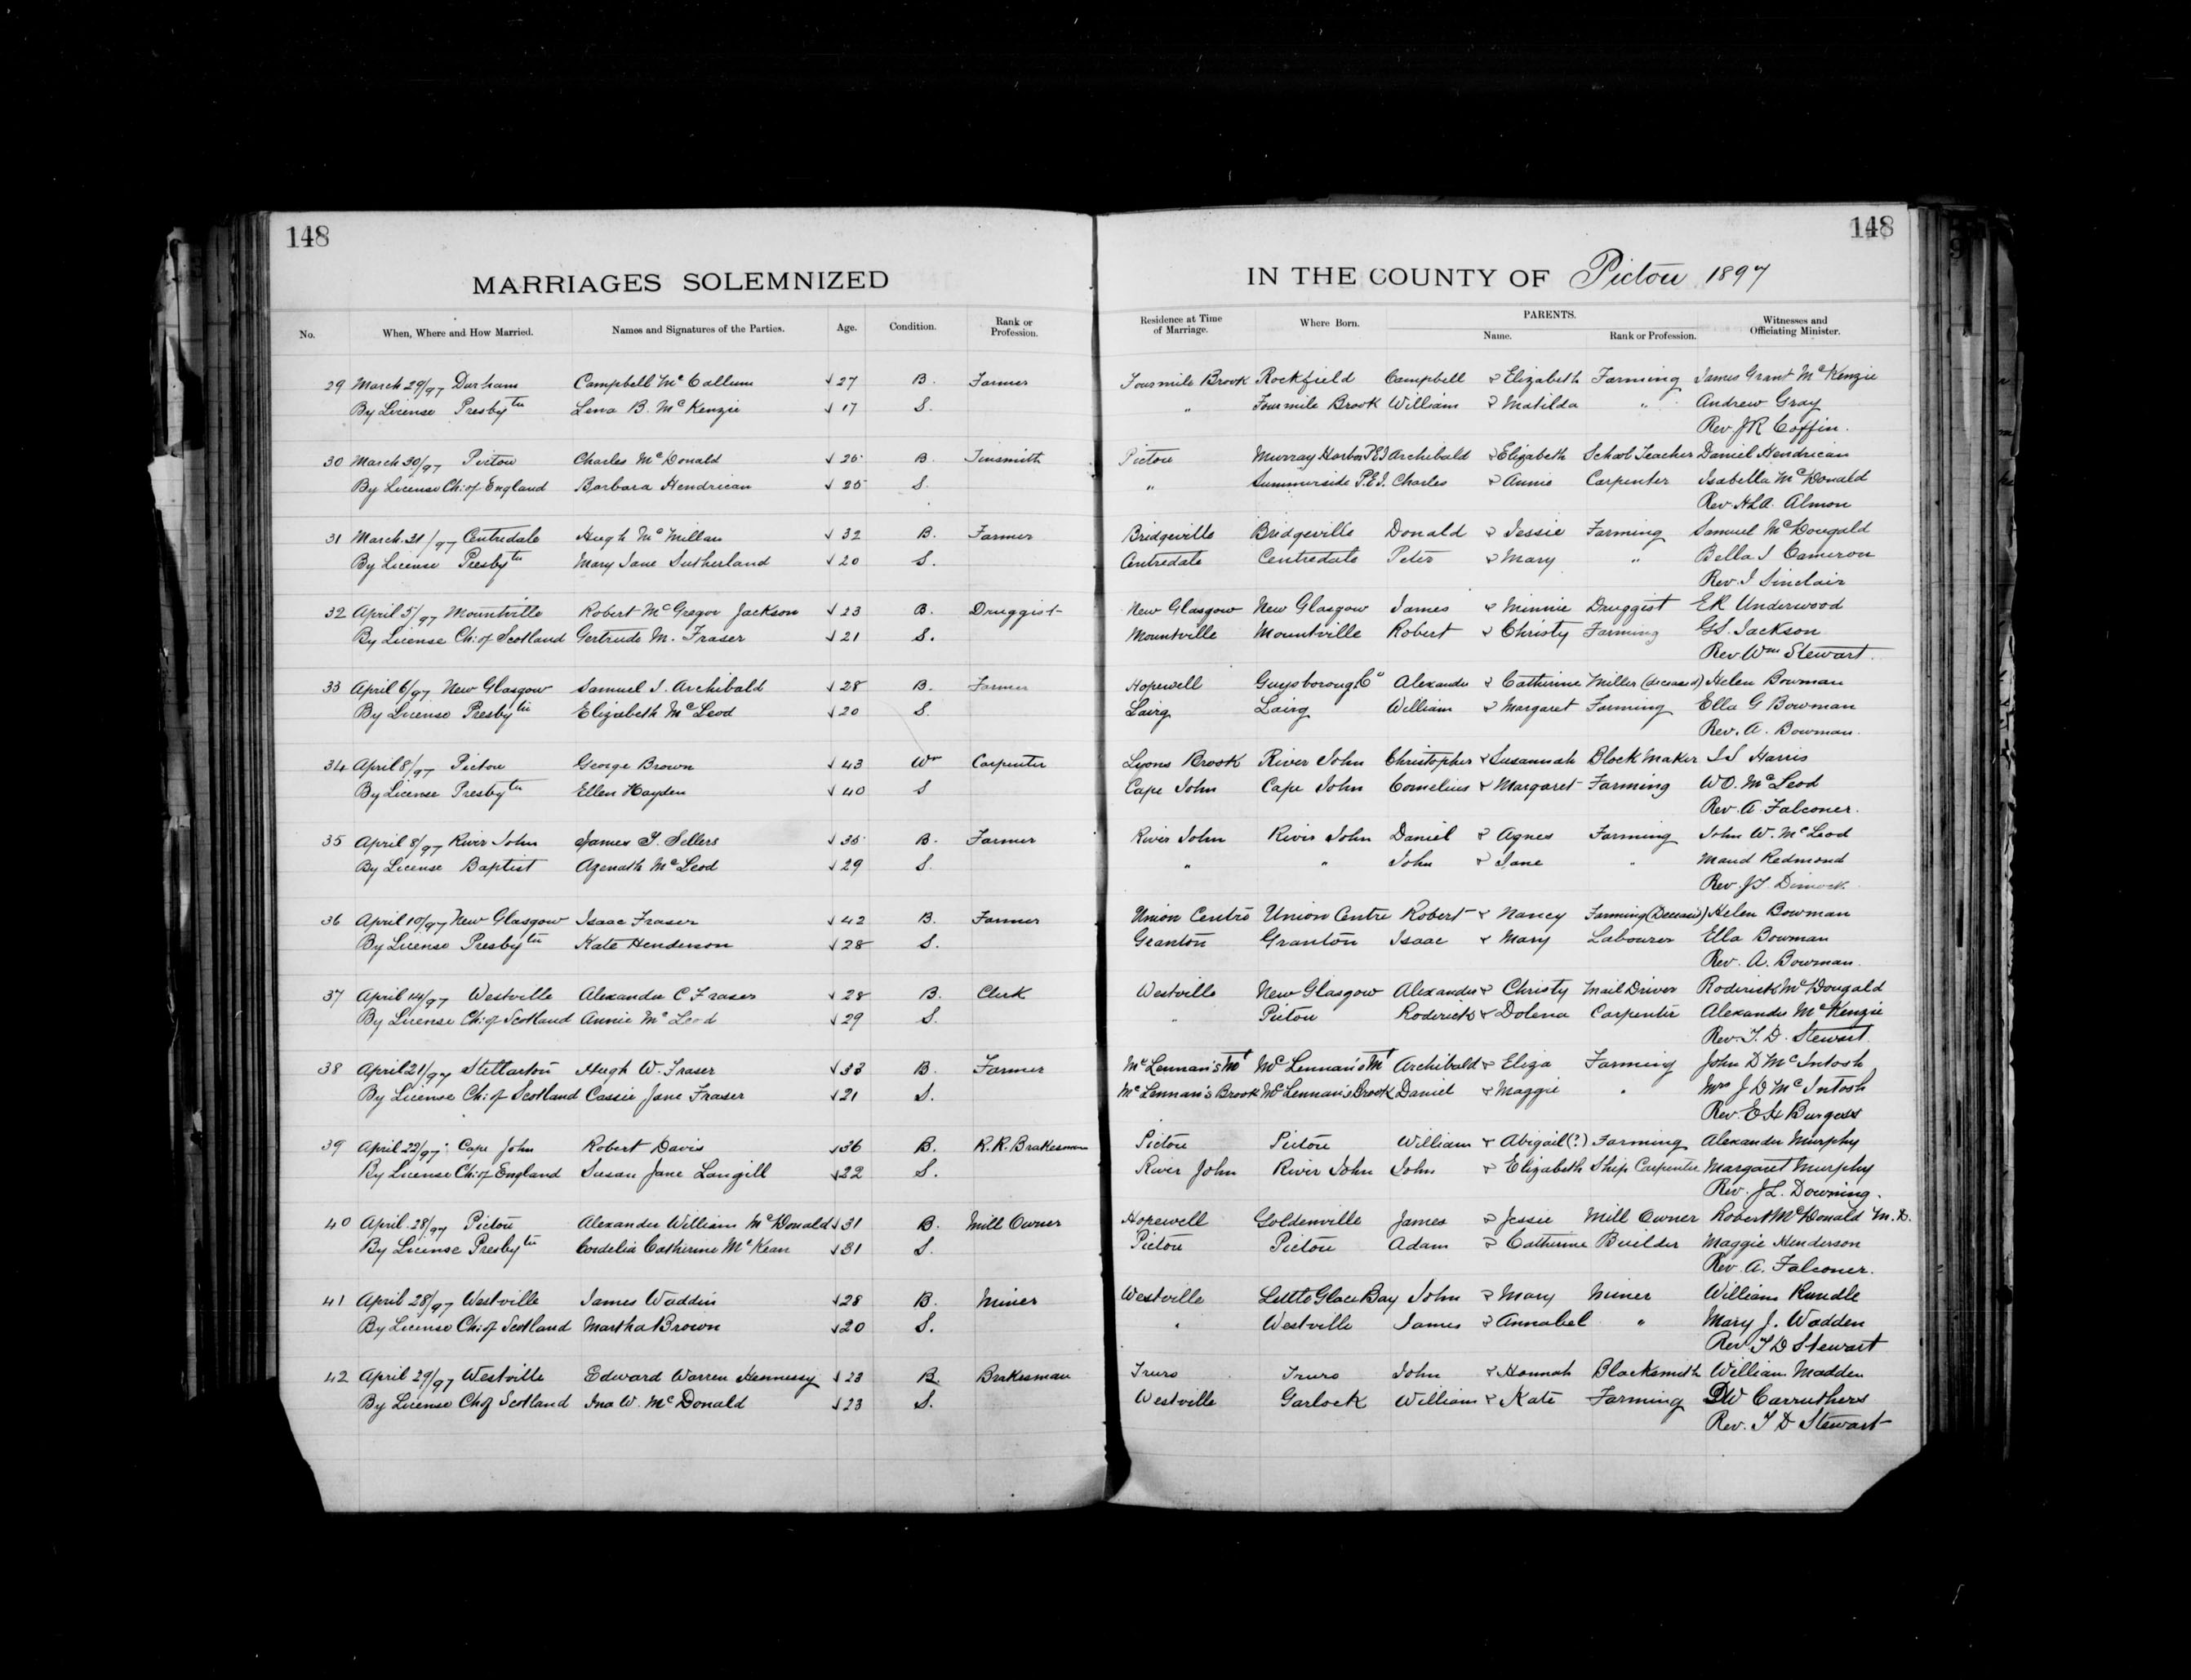 148
148
MARRIAGES SOLEMNIZED IN THE COUNTY OF Pictou 1897
No. When, Where and How Married. Names and Signatures of the Parties. Age. Condition. Rank or Profession. Residence at Time of Marriage. Where Born. PARENTS. Name. Rank or Profession. Witnesses and Officiating Minister.
29 March 29/97 Durham Campbell McCallum √ 27 B. Farmer Fourmile Brook Rockfield Campbell & Elizabeth Farming James Grant McKenzie
By License Presbytn Lena B. McKenzie √ 17 S. " Fourmile Brook William & Matilda " Andrew Gray
Rev. JR Coffin.
30 March 30/97 Pictou Charles McDonald √ 25 B. Tinsmith Pictou Murray Harbor PEI Archibald & Elizabeth School Teacher Daniel Hendrican
By License Ch: of England Barbara Hendrican √ 25 S. " Summerside P.E.I. Charles & Annie Carpenter Isabella McDonald
Rev. H.L.A. Almon
31 March 31/97 Centredale Hugh McMillan √ 32 B. Farmer Bridgeville Bridgeville Donald & Jessie Farming Samuel McDougald
By License Presbytn Mary Jane Sutherland √ 20 S. Centredale Centredale Peter & Mary " Bella J Cameron
Rev. J Sinclair
32 April 5/97 Mountville Robert McGregor Jackson √ 23 B. Druggist New Glasgow New Glasgow James & Minnie Druggist ER Underwood
By License Ch: of Scotland Gertrude M. Fraser √ 21 S. Mountville Mountville Robert & Christy Farming GS. Jackson
Rev. Wm Stewart.
33 April 6/97 New Glasgow Samuel J. Archibald √ 28 B. Farmer Hopewell Guysborough Co Alexander & Catherine Miller (deceased) Helen Bowman
By License Presbytn Elizabeth McLeod √ 20 S. Lairg Lairg William & Margaret Farming Ella G Bowman
Rev. A. Bowman.
34 April 8/97 Pictou George Brown √ 43 Wr Carpenter Lyons Brook River John Christopher & Susannah Block Maker J.S Harris
By License Presbytn Ellen Hayden √ 40 S Cape John Cape John Cornelius & Margaret Farming WO. McLeod
Rev. A. Falconer.
35 April 8/97 River John James T. Sellers √ 35 B. Farmer River John River John Daniel & Agnes Farming John W. McLeod
By License Baptist Azenath McLeod √ 29 S. " " John & Jane " Maud Redmond
Rev. J.T. Dimock
36 April 10/97 New Glasgow Isaac Fraser √ 42 B. Farmer Union Centre Union Centre Robert & Nancy Farming (Deceased) Helen Bowman
By License Presbytn Kate Henderson √ 28 S. Granton Granton Isaac & Mary Labourer Ella Bowman
Rev. A. Bowman.
37 April 14/97 Westville Alexander C Fraser √ 28 B. Clerk Westville New Glasgow Alexander & Christy Mail Driver Roderick McDougald
By License Ch: of Scotland Annie McLeod √ 29 S. " Pictou Roderick & Dolena Carpenter Alexander McKenzie
Rev. T. D. Stewart.
38 April 21/97 Stellarton Hugh W. Fraser √ 33 B. Farmer McLennan's Mt McLennan's Mt Archibald & Eliza Farming John D McIntosh
By License Ch: of Scotland Cassie Jane Fraser √ 21 S. McLennan's Brook McLennan's Brook Daniel & Maggie " Mrs J D McIntosh
Rev. E H Burgess
39 April 22/97 Cape John Robert Davis √ 36 B. R.R. Brakesman Pictou Pictou William & Abigail (?) Farming Alexander Murphy
By License Ch: of England Susan Jane Langill √ 22 S. River John River John John & Elizabeth Ship Carpenter Margaret Murphy
Rev. J.L. Downing.
40 April 28/97 Pictou Alexander William McDonald √ 31 B. Mill Owner Hopewell Goldenville James & Jessie Mill Owner Robert McDonald M.D.
By License Presbytn Cordelia Catherine McKean √ 31 S. Pictou Pictou Adam & Catherine Builder Maggie Henderson
Rev. A. Falconer.
41 April 28/97 Westville James Waddin √ 28 B. Miner Westville Little Glace Bay John & Mary Miner William Rundle
By License Ch: of Scotland Martha Brown √ 20 S. " Westville James & Annabel " Mary J. Wadden
Rev T D Stewart
42 April 29/97 Westville Edward Warren Hennessy √ 23 B. Brakesman Truro Truro John & Hannah Blacksmith William Madden
By License Ch of Scotland Ina W. McDonald √ 23 S. Westville Garlock William & Kate Farming DW Carruthers
Rev. T D Stewart